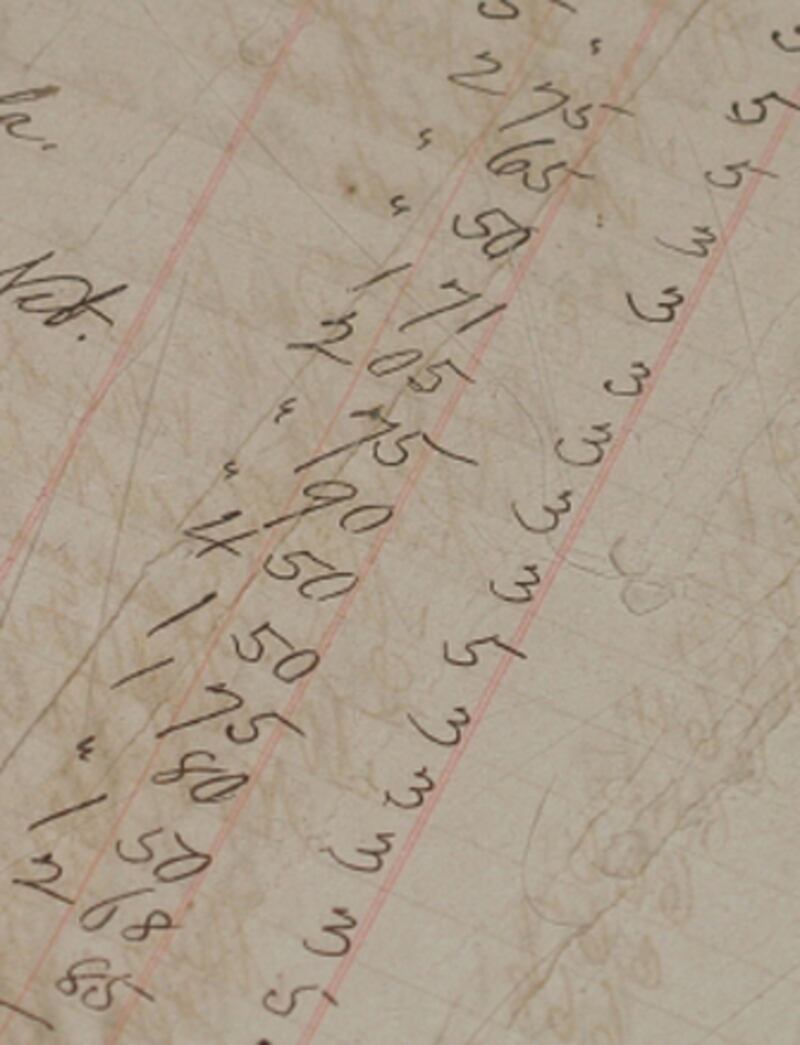 5 " 5
2 75 5
" 65 3
" 50 3
1 71 3
2 05 3
Net. " 75 3
" 90 3
4 50 5
1 50 3
1 75 3
" 80 3
1 50 3
2 68 5
85